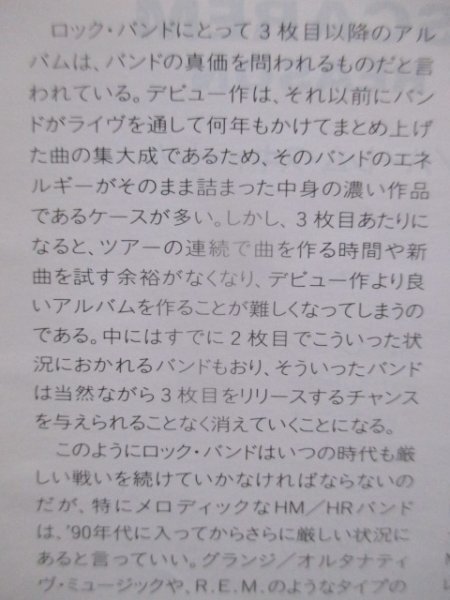 ロック・バンドにとって３枚目以降のアル
バムは、バンドの真価を問われるものだと言
われている。デビュー作は、それ以前にバン
ドがライヴを通して何年もかけてまとめ上げ
た曲の集大成であるため、そのバンドのエネ
ルギーがそのまま詰まった中身の濃い作品
であるケースが多い。しかし、３枚目あたりに
なると、ツアーの連続で曲を作る時間や新
曲を試す余裕がなくなり、デビュー作より良
いアルバムを作ることが難しくなってしまうの
である。中にはすでに２枚目でこういった状
況におかれるバンドもおり、そういったバンド
は当然ながら３枚目をリリースするチャンス
を与えられることなく消えていくことになる。
このようにロック・バンドはいつの時代も厳
しい戦いを続けていかなければならないの
だが、特にメロディックなＨＭ／ＨＲバンド
は、'90年代に入ってからさらに厳しい状況に
あると言っていい。グランジ／オルタナティ
ヴ・ミュージックや、R.E.M.のようなタイプの